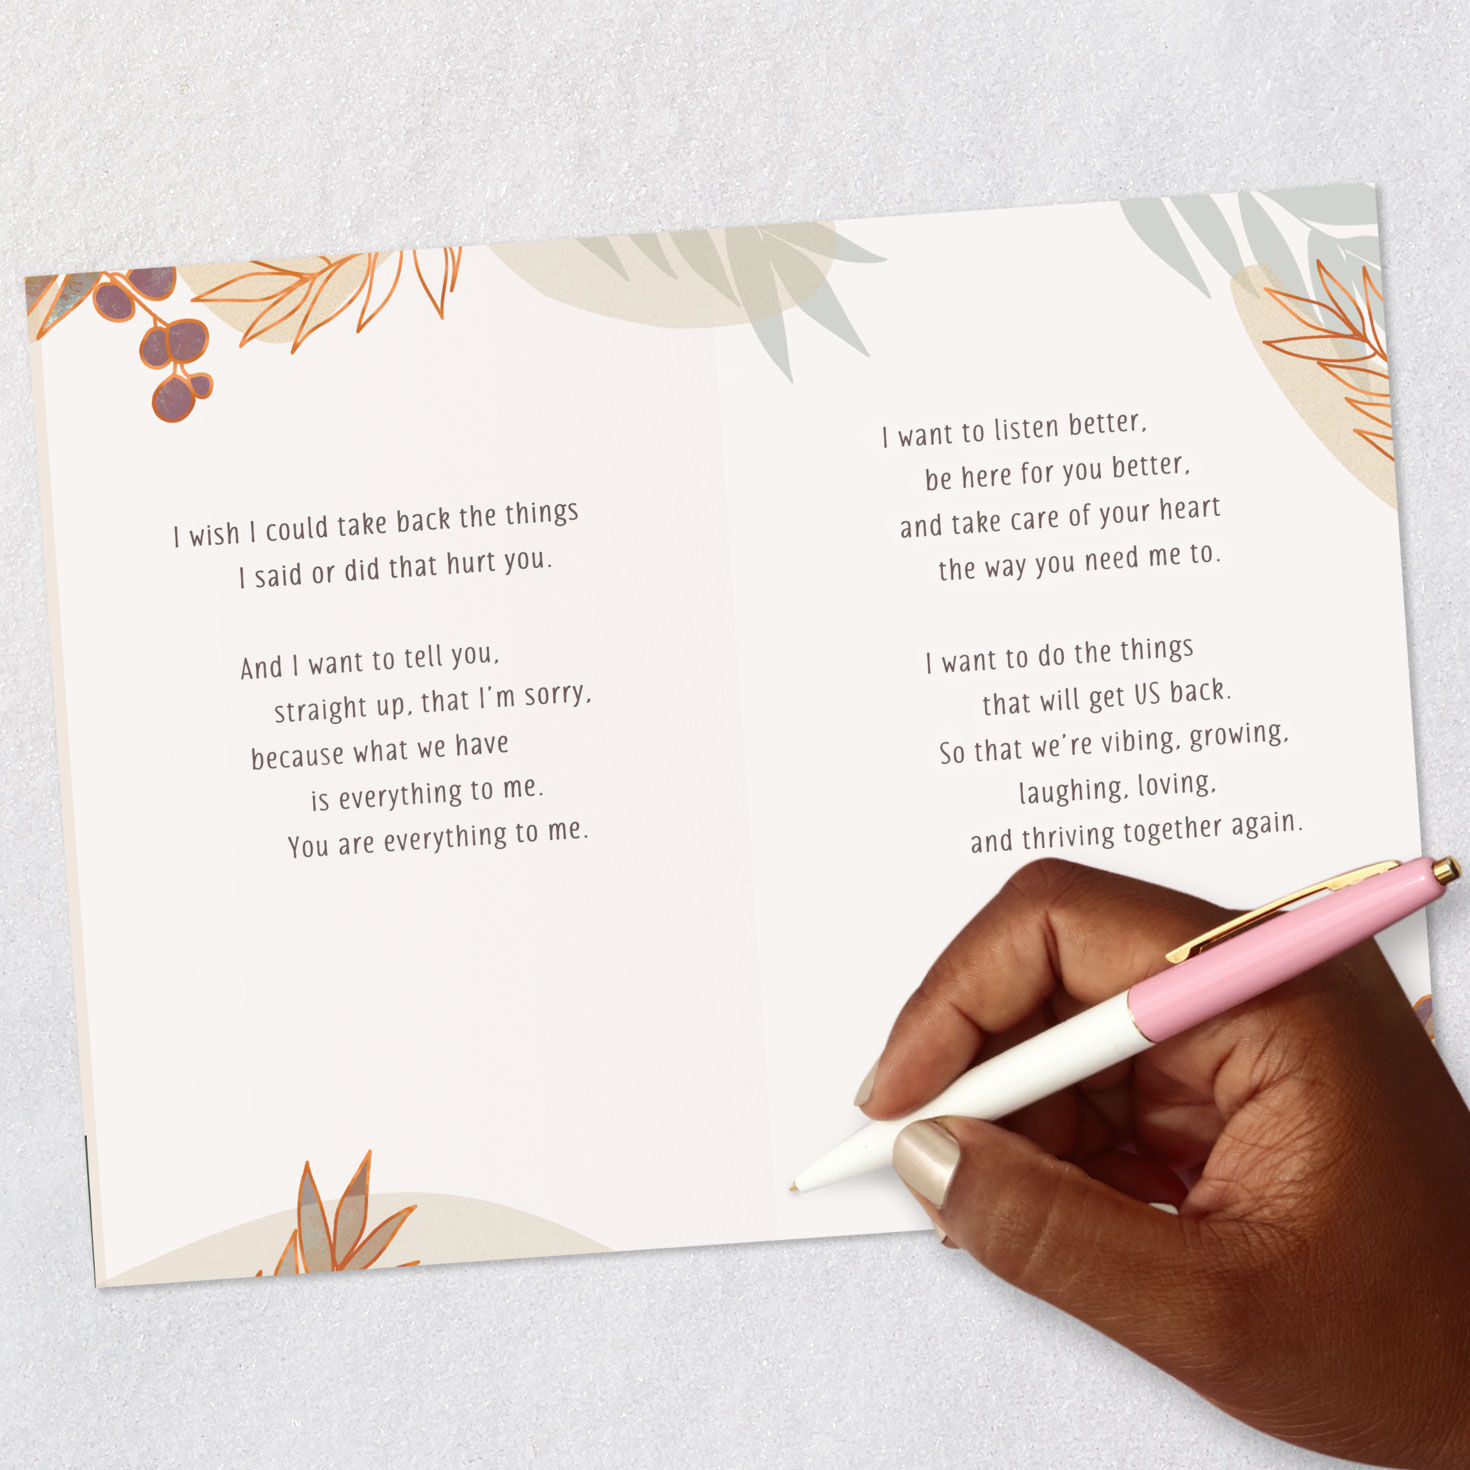 I wish I could take back the things
I said or did that hurt you.
And I want to tell you,
straight up, that I'm sorry,
because what we have
is everything to me.
You are everything to me.
I want to listen better,
be here for you better,
and take care of your heart
the way you need me to.
I want to do the things
that will get US back.
So that we're vibing, growing,
laughing, loving,
and thriving together again.